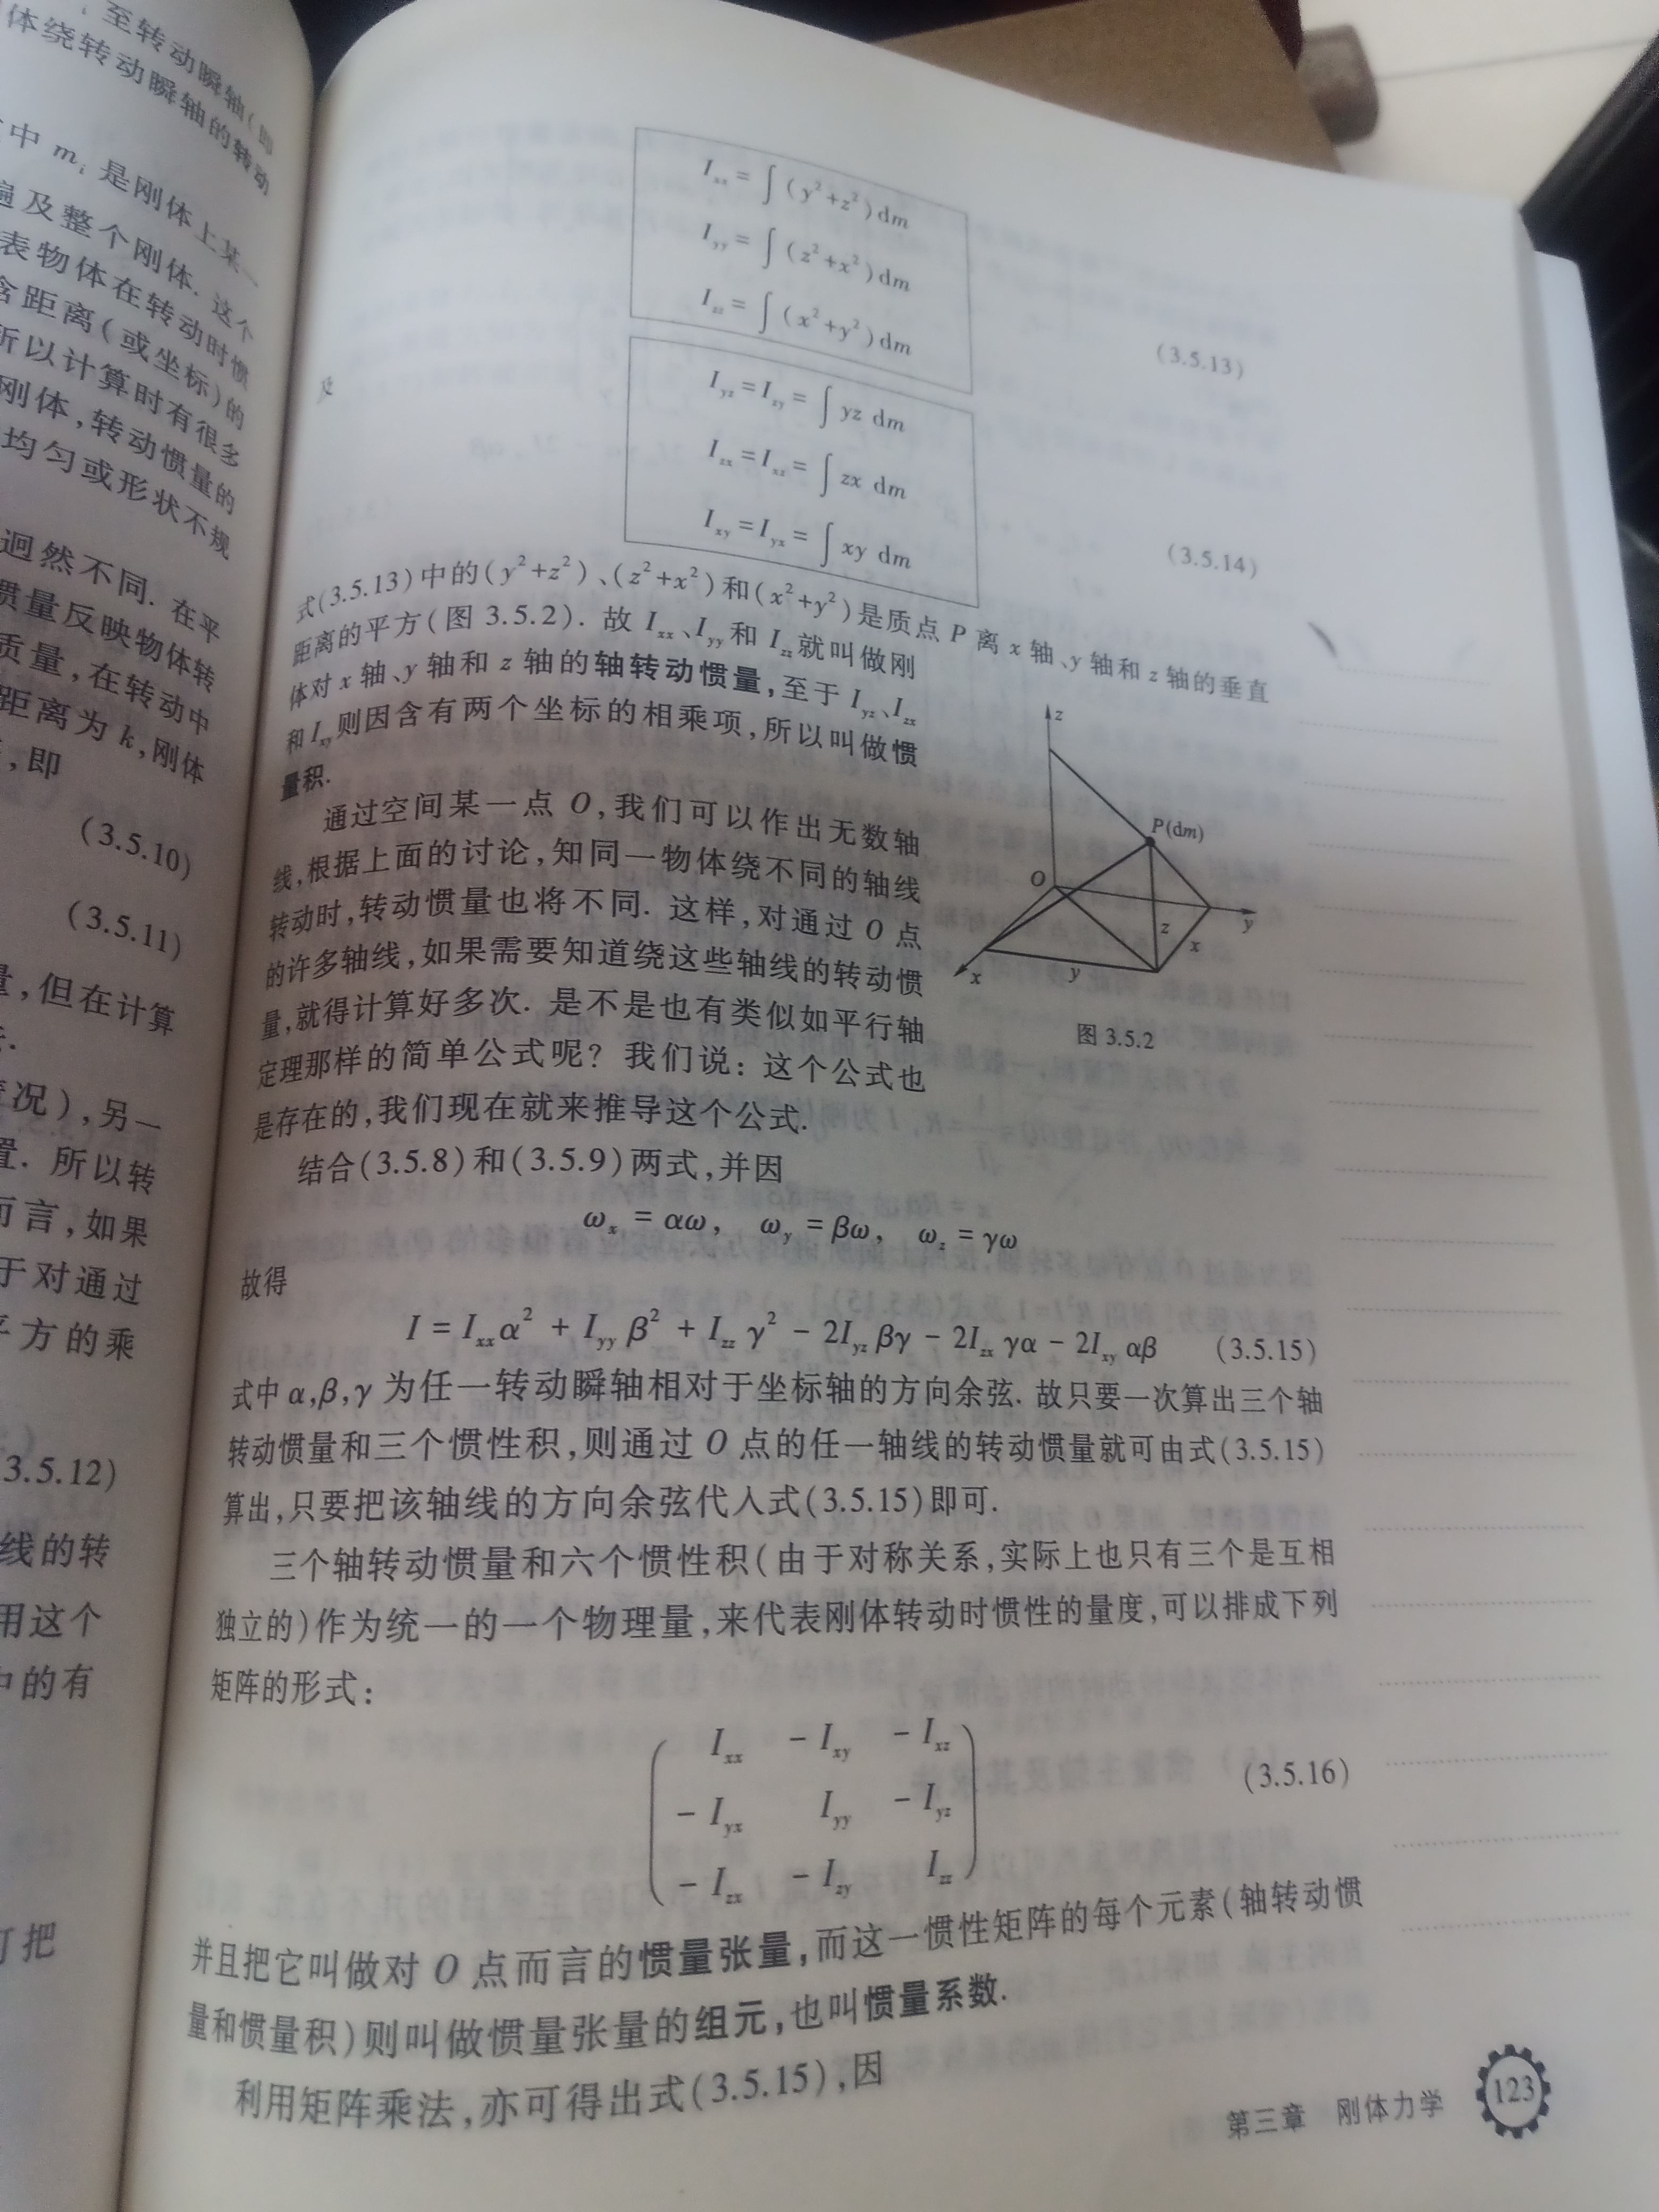 至转动瞬轴(即
体绕转动瞬轴的转动
中 mᵢ 是刚体上某一
遍及整个刚体. 这个
表物体在转动时惯
含距离(或坐标)的
所以计算时有很多
刚体,转动惯量的
均匀或形状不规
迥然不同. 在平
惯量反映物体转
质量,在转动中
距离为 k,刚体
,即
(3.5.10)
(3.5.11)
量,但在计算
情况),另一
置. 所以转
而言,如果
于对通过
平方的乘
3.5.12)
线的转
用这个
中的有
可把
I_xx = ∫(y²+z²)dm
I_yy = ∫(z²+x²)dm
I_zz = ∫(x²+y²)dm
(3.5.13)
及
I_yz = I_zy = ∫ yz dm
I_zx = I_xz = ∫ zx dm
I_xy = I_yx = ∫ xy dm
(3.5.14)
式(3.5.13)中的(y²+z²)、(z²+x²)和(x²+y²)是质点 P 离 x 轴、y 轴和 z 轴的垂直
距离的平方(图 3.5.2). 故 I_xx、I_yy 和 I_zz 就叫做刚
体对 x 轴、y 轴和 z 轴的轴转动惯量,至于 I_yz、I_zx
和 I_xy 则因含有两个坐标的相乘项,所以叫做惯
量积.
z
P(dm)
O
z
x
y
x
y
图 3.5.2
通过空间某一点 O,我们可以作出无数轴
线,根据上面的讨论,知同一物体绕不同的轴线
转动时,转动惯量也将不同. 这样,对通过 O 点
的许多轴线,如果需要知道绕这些轴线的转动惯
量,就得计算好多次. 是不是也有类似如平行轴
定理那样的简单公式呢? 我们说: 这个公式也
是存在的,我们现在就来推导这个公式.
结合(3.5.8)和(3.5.9)两式,并因
ω_x = αω, ω_y = βω, ω_z = γω
故得
I = I_xx α² + I_yy β² + I_zz γ² − 2I_yz βγ − 2I_zx γα − 2I_xy αβ (3.5.15)
式中 α,β,γ 为任一转动瞬轴相对于坐标轴的方向余弦. 故只要一次算出三个轴
转动惯量和三个惯性积,则通过 O 点的任一轴线的转动惯量就可由式(3.5.15)
算出,只要把该轴线的方向余弦代入式(3.5.15)即可.
三个轴转动惯量和六个惯性积(由于对称关系,实际上也只有三个是互相
独立的)作为统一的一个物理量,来代表刚体转动时惯性的量度,可以排成下列
矩阵的形式:
I_xx − I_xy − I_xz
− I_yx I_yy − I_yz
− I_zx − I_zy I_zz
(3.5.16)
并且把它叫做对 O 点而言的惯量张量,而这一惯性矩阵的每个元素(轴转动惯
量和惯量积)则叫做惯量张量的组元,也叫惯量系数.
利用矩阵乘法,亦可得出式(3.5.15),因
第三章 刚体力学 123